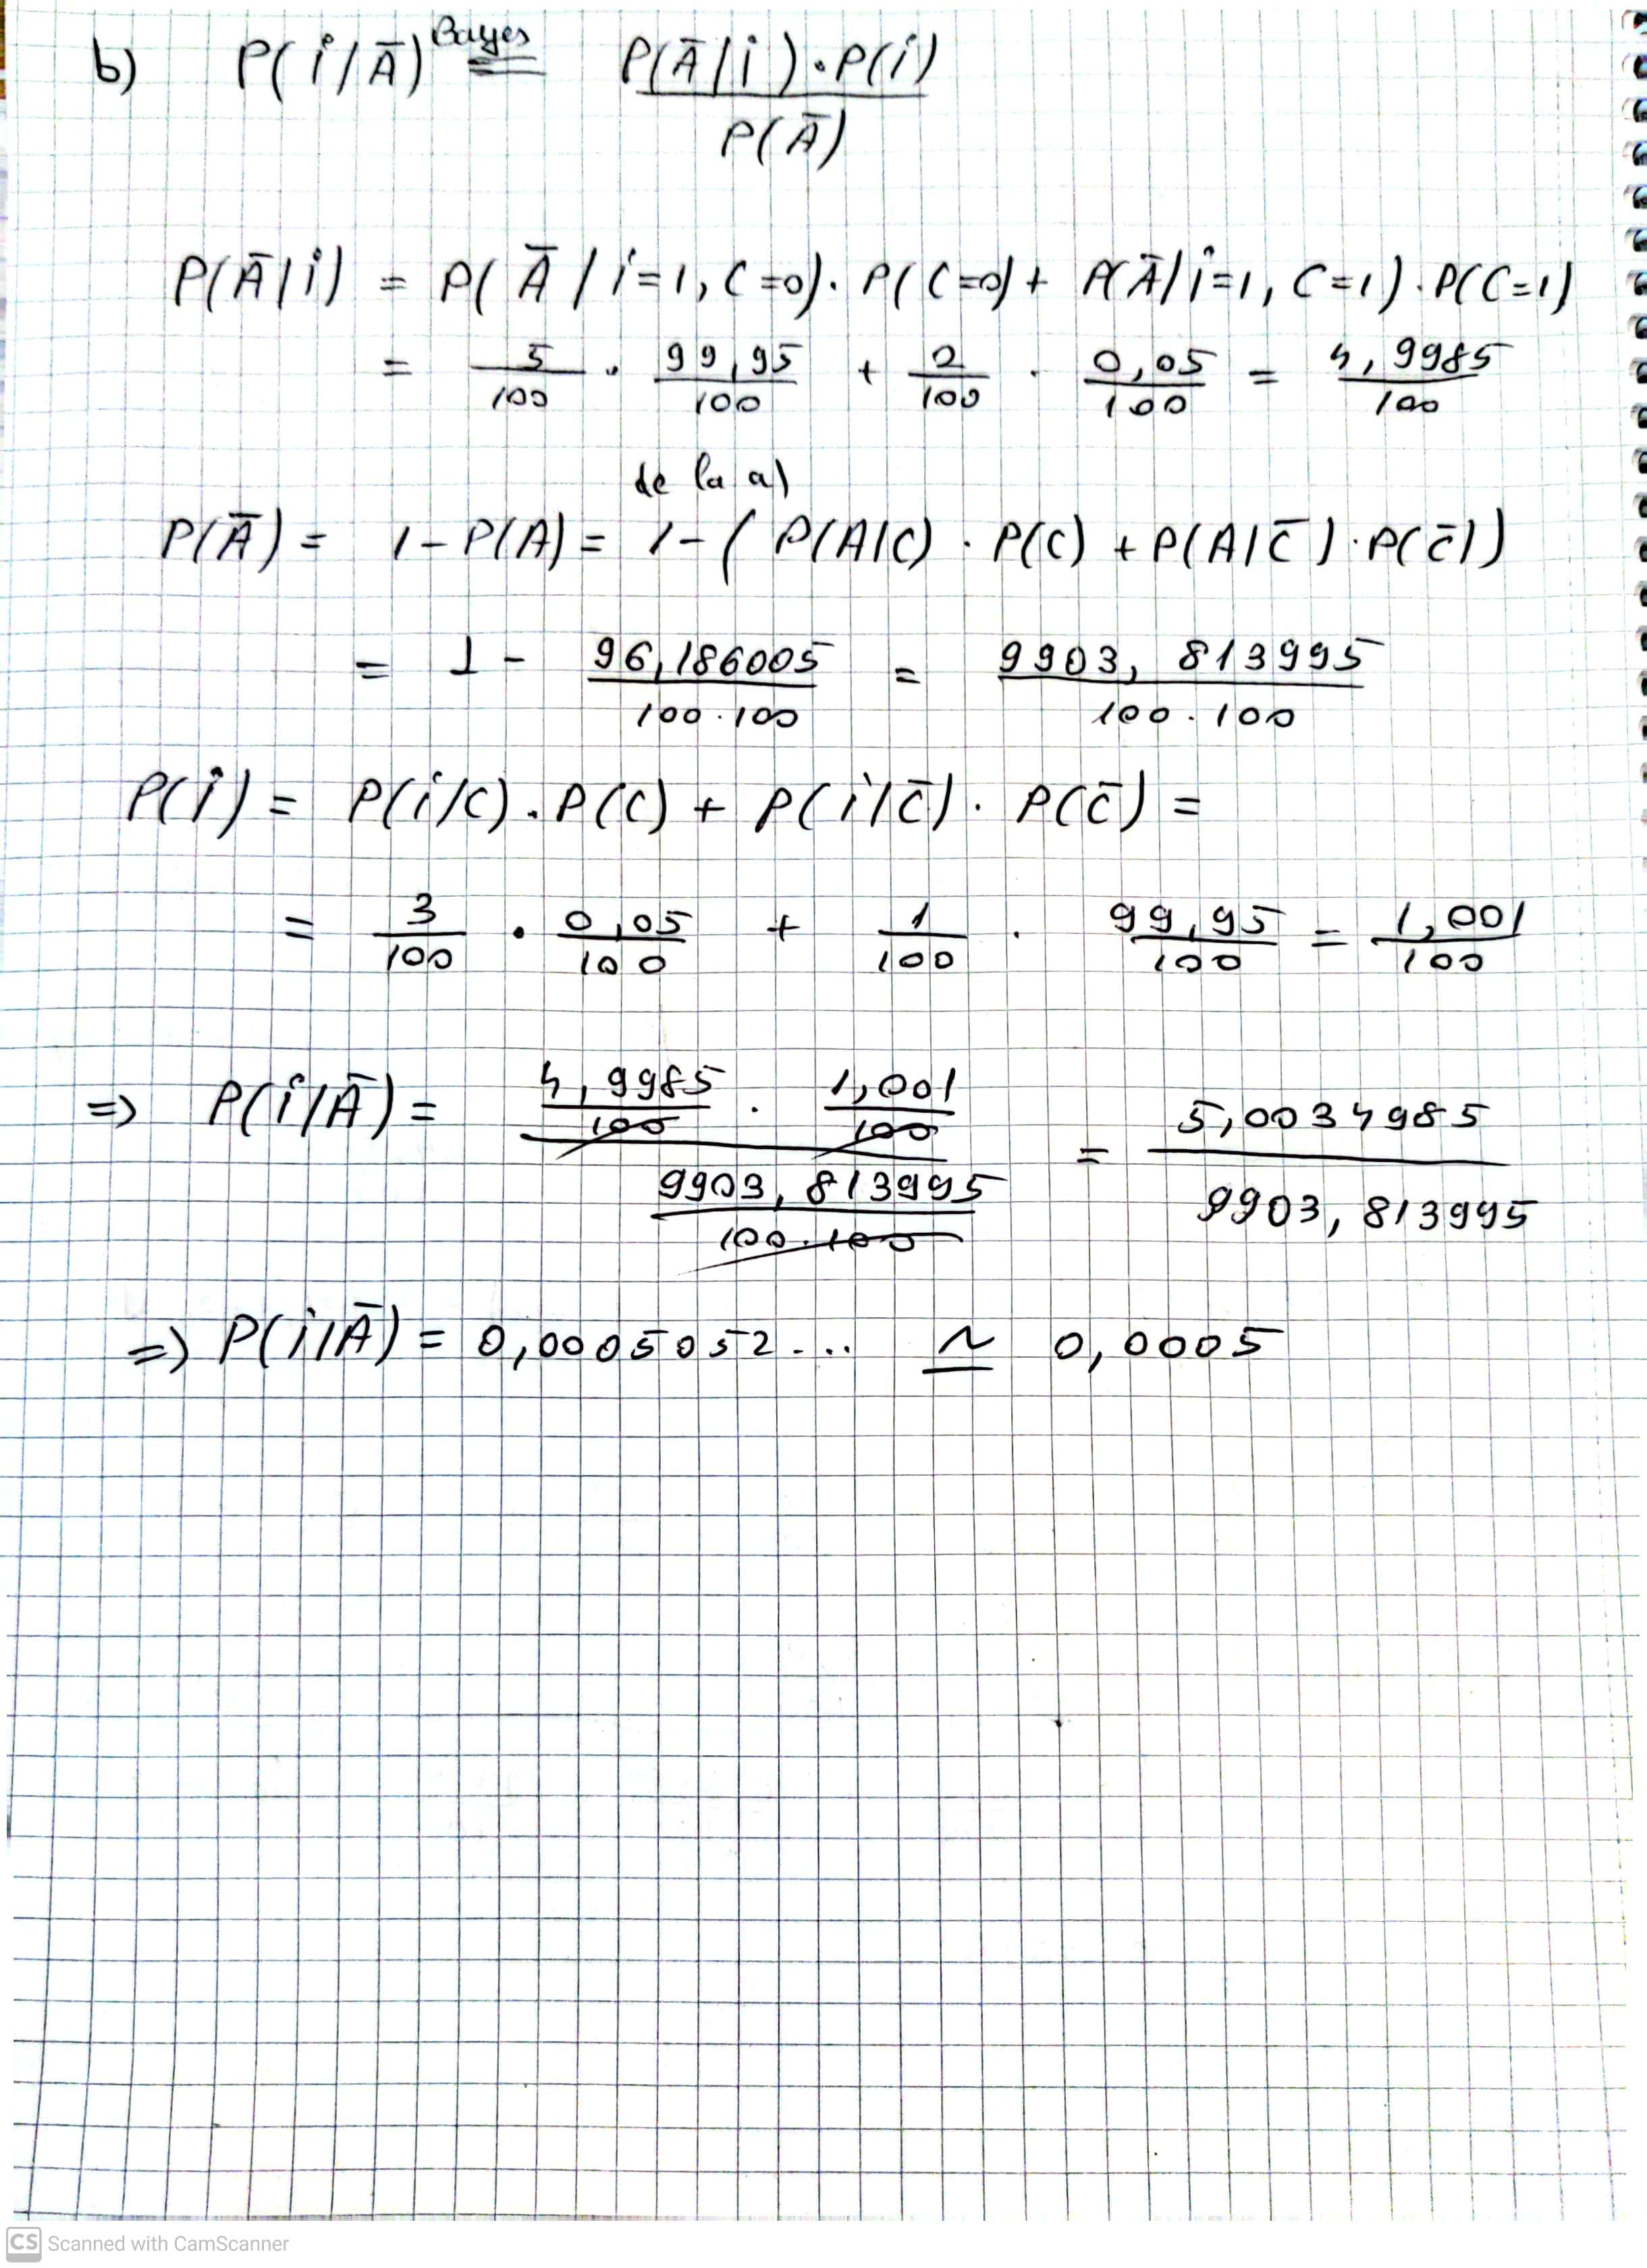 b) P(i/Ā) Bayes = P(Ā/i)·P(i) / P(Ā)
P(Ā/i) = P(Ā/i=1, C=0)·P(C=0) + P(Ā/i=1, C=1)·P(C=1)
= 5/100 · 99,95/100 + 2/100 · 0,05/100 = 4,9985/100
de la a)
P(Ā) = 1-P(A) = 1-(P(A/C)·P(C) + P(A/C̄)·P(C̄))
= 1 - 96,186005/100·100 = 9903,813995/100·100
P(i) = P(i/C)·P(C) + P(i/C̄)·P(C̄) =
= 3/100 · 0,05/100 + 1/100 · 99,95/100 = 1,001/100
=> P(i/Ā) = 4,9985/100 · 1,001/100 / 9903,813995/100·100 = 5,0034985/9903,813995
=> P(i/Ā) = 0,0005052... ≃ 0,0005
CS Scanned with CamScanner